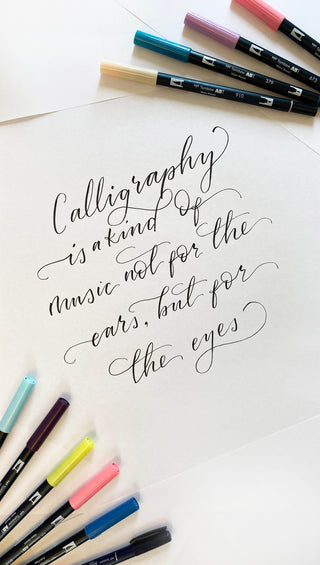 Calligraphy
is a kind Of
music not for the
ears, but for
the eyes